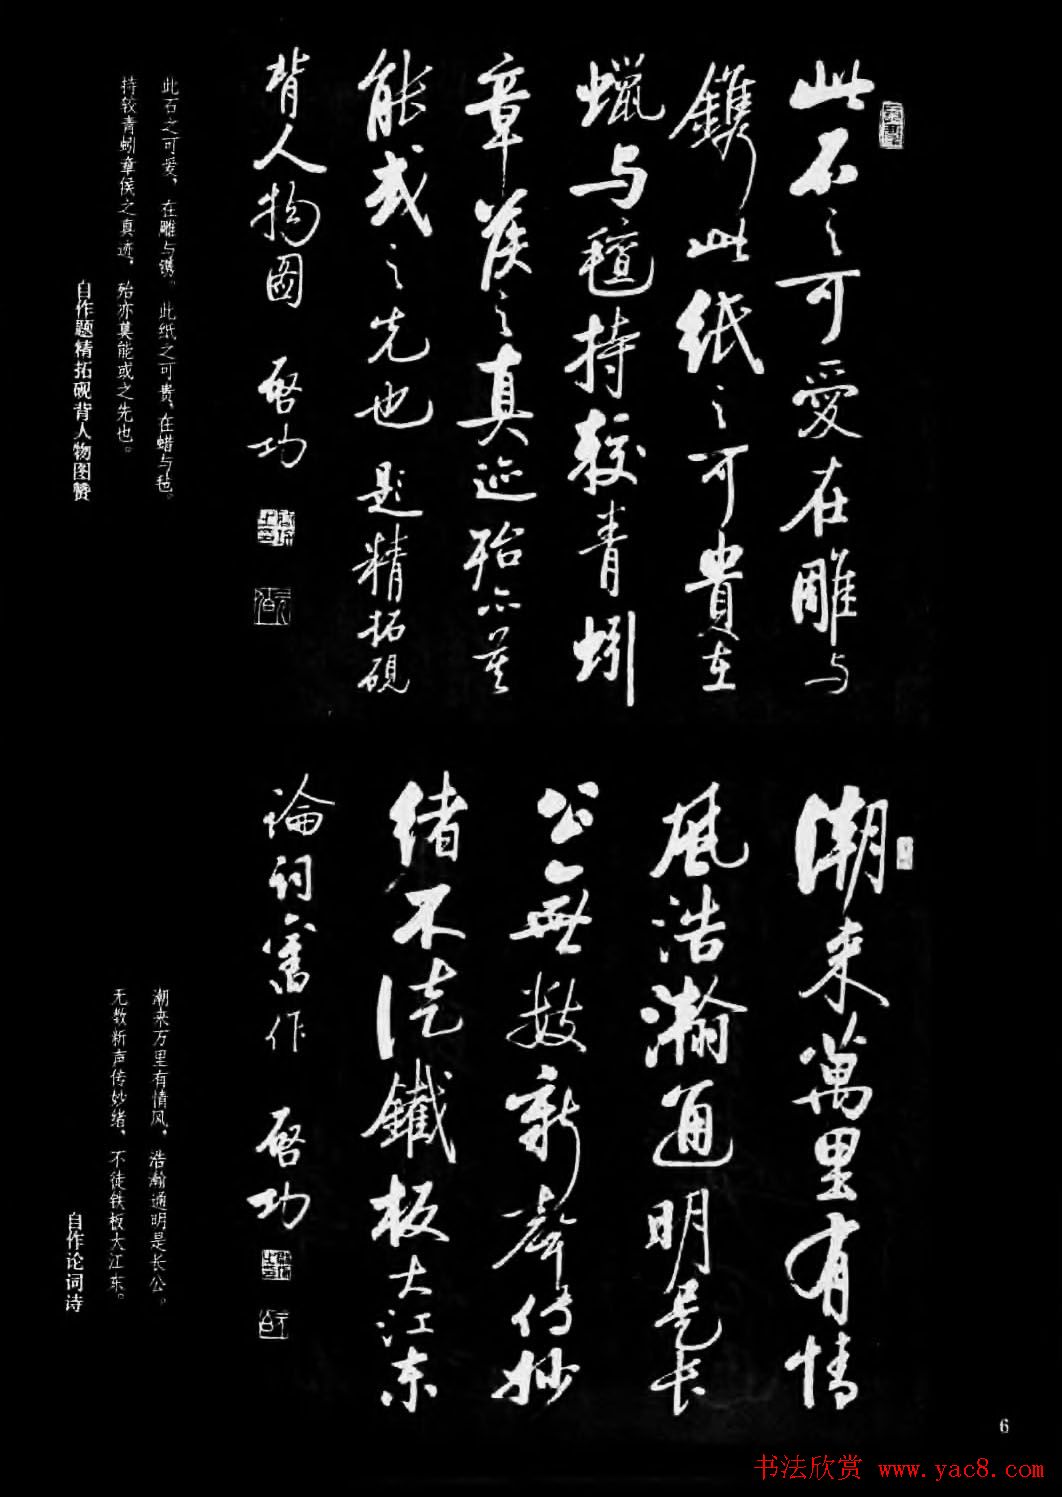 此石之可愛在雕与
鐫此紙之可貴在
蠟与氊持較青蚓
章侯之真迹殆亦莫
能或之先也 题精拓硯
背人物圖 啓功
此石之可爱，在雕与镌。此纸之可贵，在蜡与毡。
持较青蚓章侯之真迹，殆亦莫能或之先也。
自作题精拓砚背人物图赞
潮来萬里有情
風浩瀚通明是长
公無数新聲传妙
绪不徒鐵板大江东
論词舊作 啓功
潮来万里有情风，浩瀚通明是长公。
无数新声传妙绪，不徒铁板大江东。
自作论词诗
6
书法欣赏 www.yac8.com